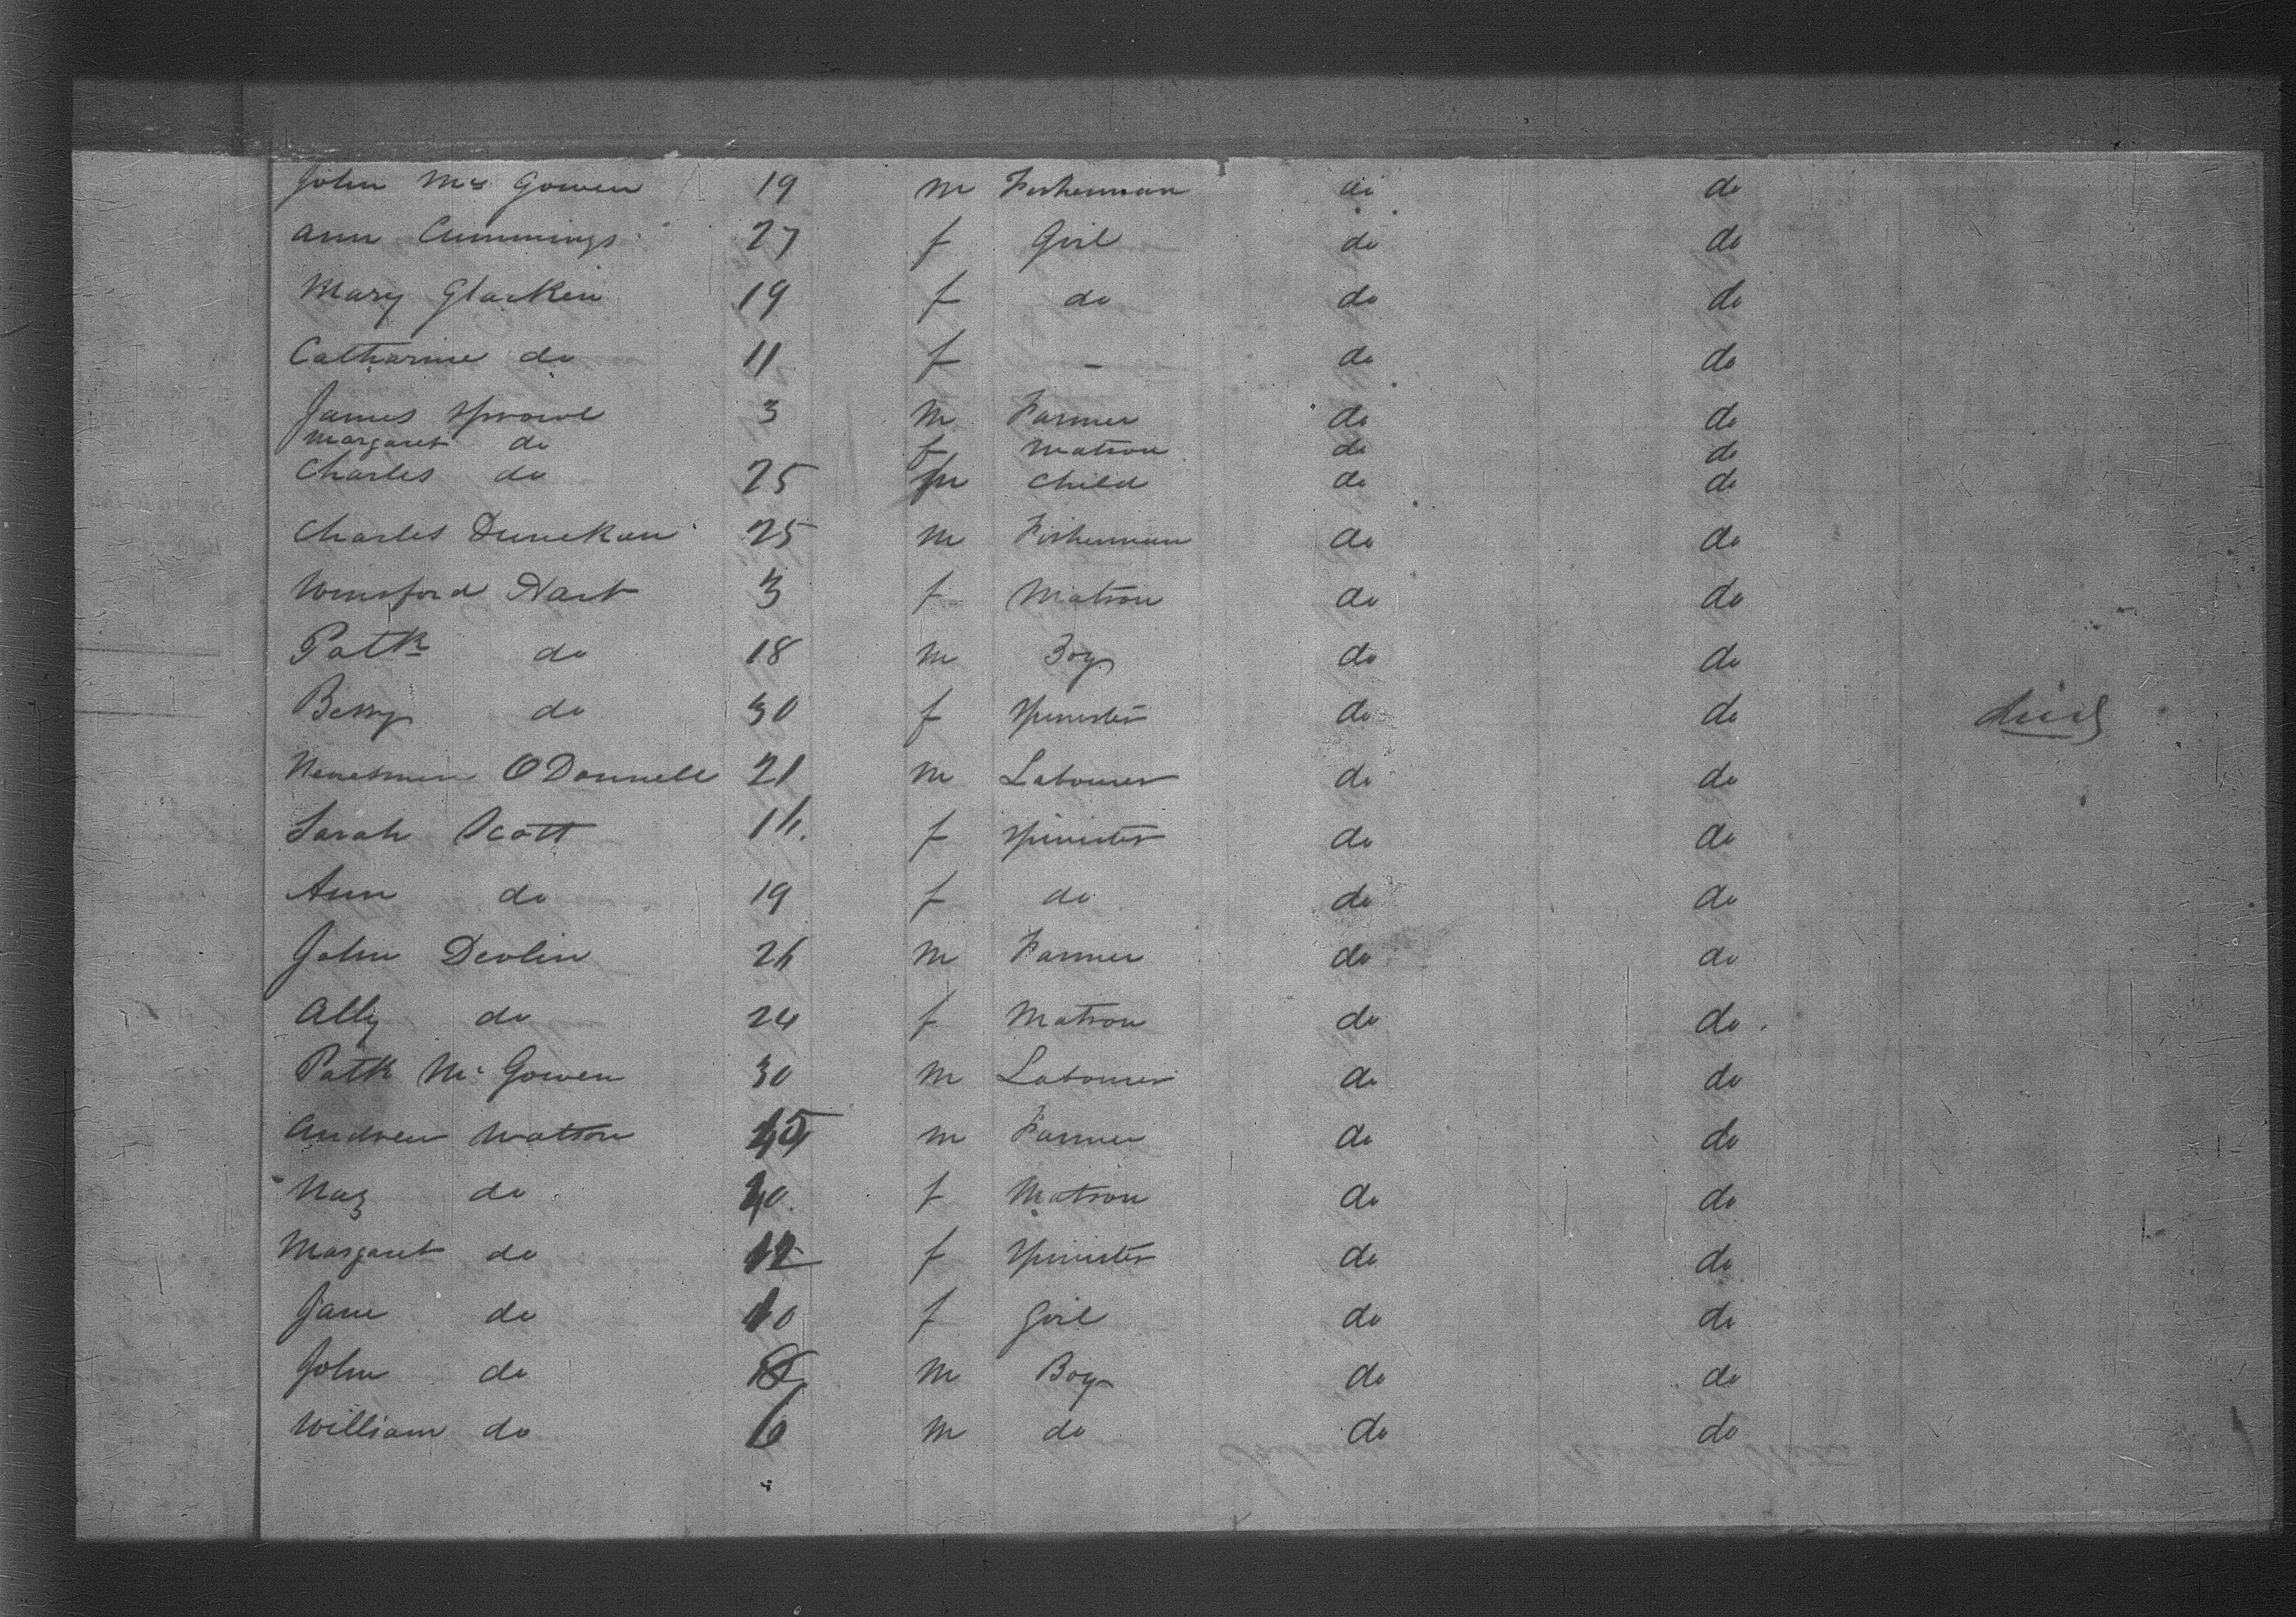 John Mc Gowen 19 m Fisherman do do
Ann Cummings 27 f Girl do do
Mary Glacken 19 f do do do
Catharine do 11 f - do do
James Sproul 3 m Farmer do do
Margaret do f Matron do do
Charles do 25 m Child do do
Charles Dunckan 25 m Fisherman do do
Winsford Hart 3 f Matron do do
Patk do 18 m Boy do do
Bessy do 30 f Spinster do do died
O Donnell 21 m Labourer do do
Sarah Scott 16. f Spinster do do
Ann do 19 f do do do
John Devlin 26 m Farmer do do
Ally do 24 f Matron do do
Patk Mc Gowen 30 m Labourer do do
Andrew Watson 45 m Farmer do do
do 40 f Matron do do
Margaret do 12 f Spinster do do
Jane do 10 f Girl do do
John do 8 m Boy do do
William do 6 m do do do